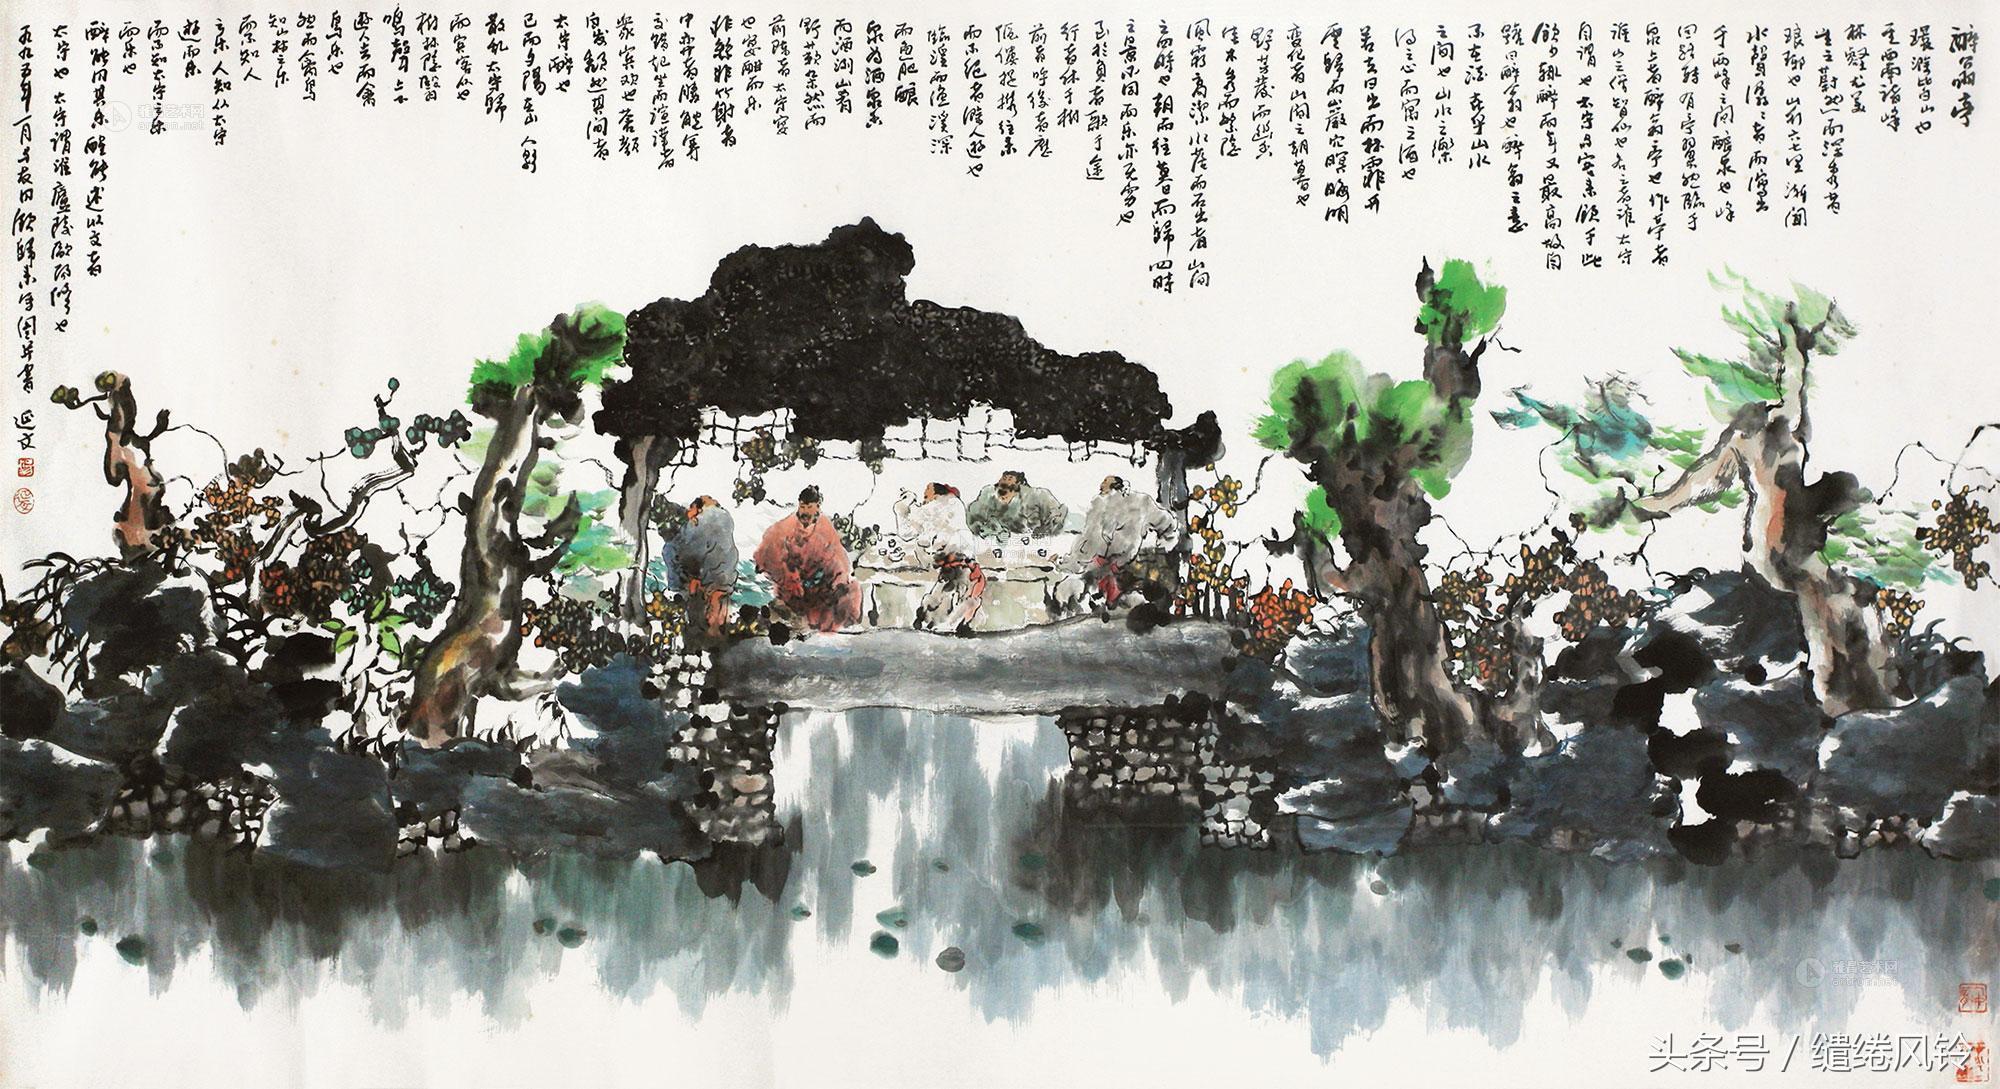 醉翁亭
環滁皆山也
至西南諸峰
林壑尤美
望之蔚然而深秀者
琅琊也山行六七里漸聞
水聲潺潺者而瀉出
于两峰之間釀泉也峰
回路轉有亭翼然臨于
泉上者醉翁亭也作亭者
誰山之僧智仙也名之者誰太守
自謂也太守与客來飲于此
飲少輒醉而年又最高故自
號曰醉翁也醉翁之意
不在酒在乎山水
之間也山水之樂
得之心而寓之酒也
若夫日出而林霏開
雲歸而巖穴暝晦明
變化者山間之朝暮也
野芳發而幽香
佳木秀而繁陰
風霜高潔水落而石出者山間
之四時也朝而往暮而歸四時
之景不同而乐亦无穷也
至於負者歌于途
行者休于樹
前者呼後者應
傴僂提携往来
而不绝者滁人遊也
臨溪而漁溪深
而魚肥釀
泉为酒泉香
而酒洌山肴
野蔌杂然而
前陳者太守宴
也宴酣而乐
非絲非竹射者
中弈者勝觥筹
交錯起坐而諠譁者
衆宾欢也蒼顏
白发頹然其间者
太守醉也
已而夕陽在山人影
散乱太守歸
而宾客从也
树林陰翳
鳴聲上下
遊人去而禽
鸟乐也
然而禽鸟
知山林之乐
而不知人
之乐人知从太守
遊而乐
而不知太守之乐
而乐也
醉能同其乐醒能述以文者
太守也太守谓誰廬陵歐陽修也
一九九五年一月与友日飲歸来 延文
雅昌艺术网
artron.net
头条号 / 缱绻风铃